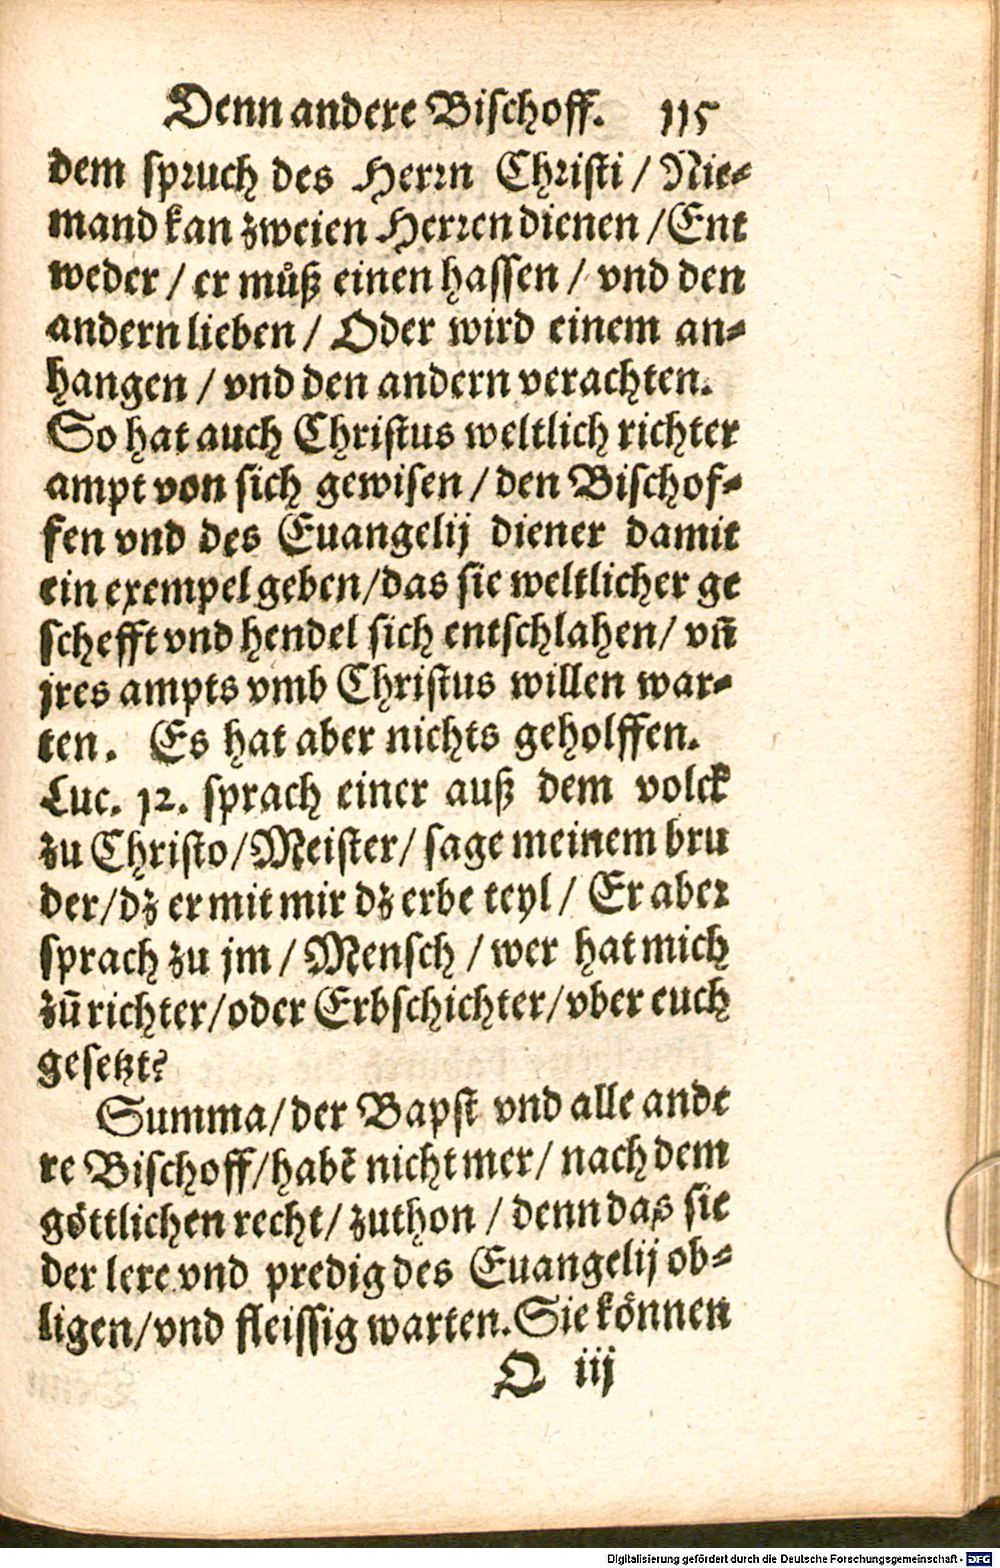 Denn andere Bischoff. 115
dem spruch des Herrn Christi / Nie⸗
mand kan zweien Herren dienen / Ent
weder / er můß einen hassen / vnd den
andern lieben / Oder wird einem an⸗
hangen / vnd den andern verachten.
So hat auch Christus weltlich richter
ampt von sich gewisen / den Bischof⸗
fen vnd des Euangelij diener damit
ein exempel geben / das sie weltlicher ge
schefft vnd hendel sich entschlahen / vn̄
jres ampts vmb Christus willen war⸗
ten. Es hat aber nichts geholffen.
Luc. 12. sprach einer auß dem volck
zu Christo / Meister / sage meinem bru
der / dz er mit mir dz erbe teyl / Er aber
sprach zu jm / Mensch / wer hat mich
zū richter / oder Erbschichter / vber euch
gesetzt?
Summa / der Bapst vnd alle ande
re Bischoff / habē nicht mer / nach dem
göttlichen recht / zuthon / denn das sie
der lere vnd predig des Euangelij ob⸗
ligen / vnd fleissig warten. Sie können
O iij
Digitalisierung gefördert durch die Deutsche Forschungsgemeinschaft - DFG